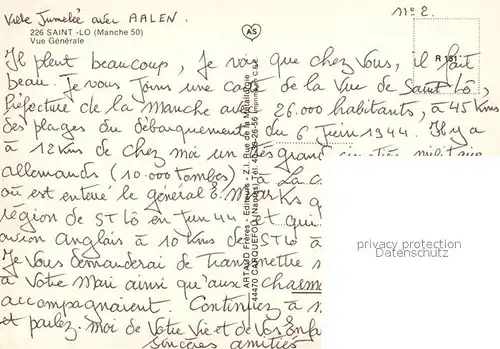 Ville Jumelée avec AALEN.
n° 2.
226 SAINT-LO (Manche 50)
Vue Générale
AS
R 181
Il pleut beaucoup, Je vois que chez vous, il fait
beau. Je vous joins une carte de la Vue de Saint Lô,
Préfecture de la Manche avec 26.000 habitants, à 45 Kms
des plages du débarquement du 6 Juin 1944. Il y a
à 12 Kms de chez moi un très grand cimetière militaire
allemands (10.000 tombes) à La C
où est enterré le général E. Marcks q
région de ST Lô en Juin 44 et qui
avion anglais à 10 Kms de ST Lô à
Je vous demanderai de transmettre
à Votre Mari ainsi qu'aux charm
accompagnaient. Continuez à m
et parlez-moi de Votre Vie et de Vos Enf
sincères amitiés
ARTAUD Frères - Editeurs - Z.I. Rue de la Métallurgie
44470 CARQUEFOU (Nantes) Tél. 40
Imprimé en C.E.E.
passion4profession
Datenschutz